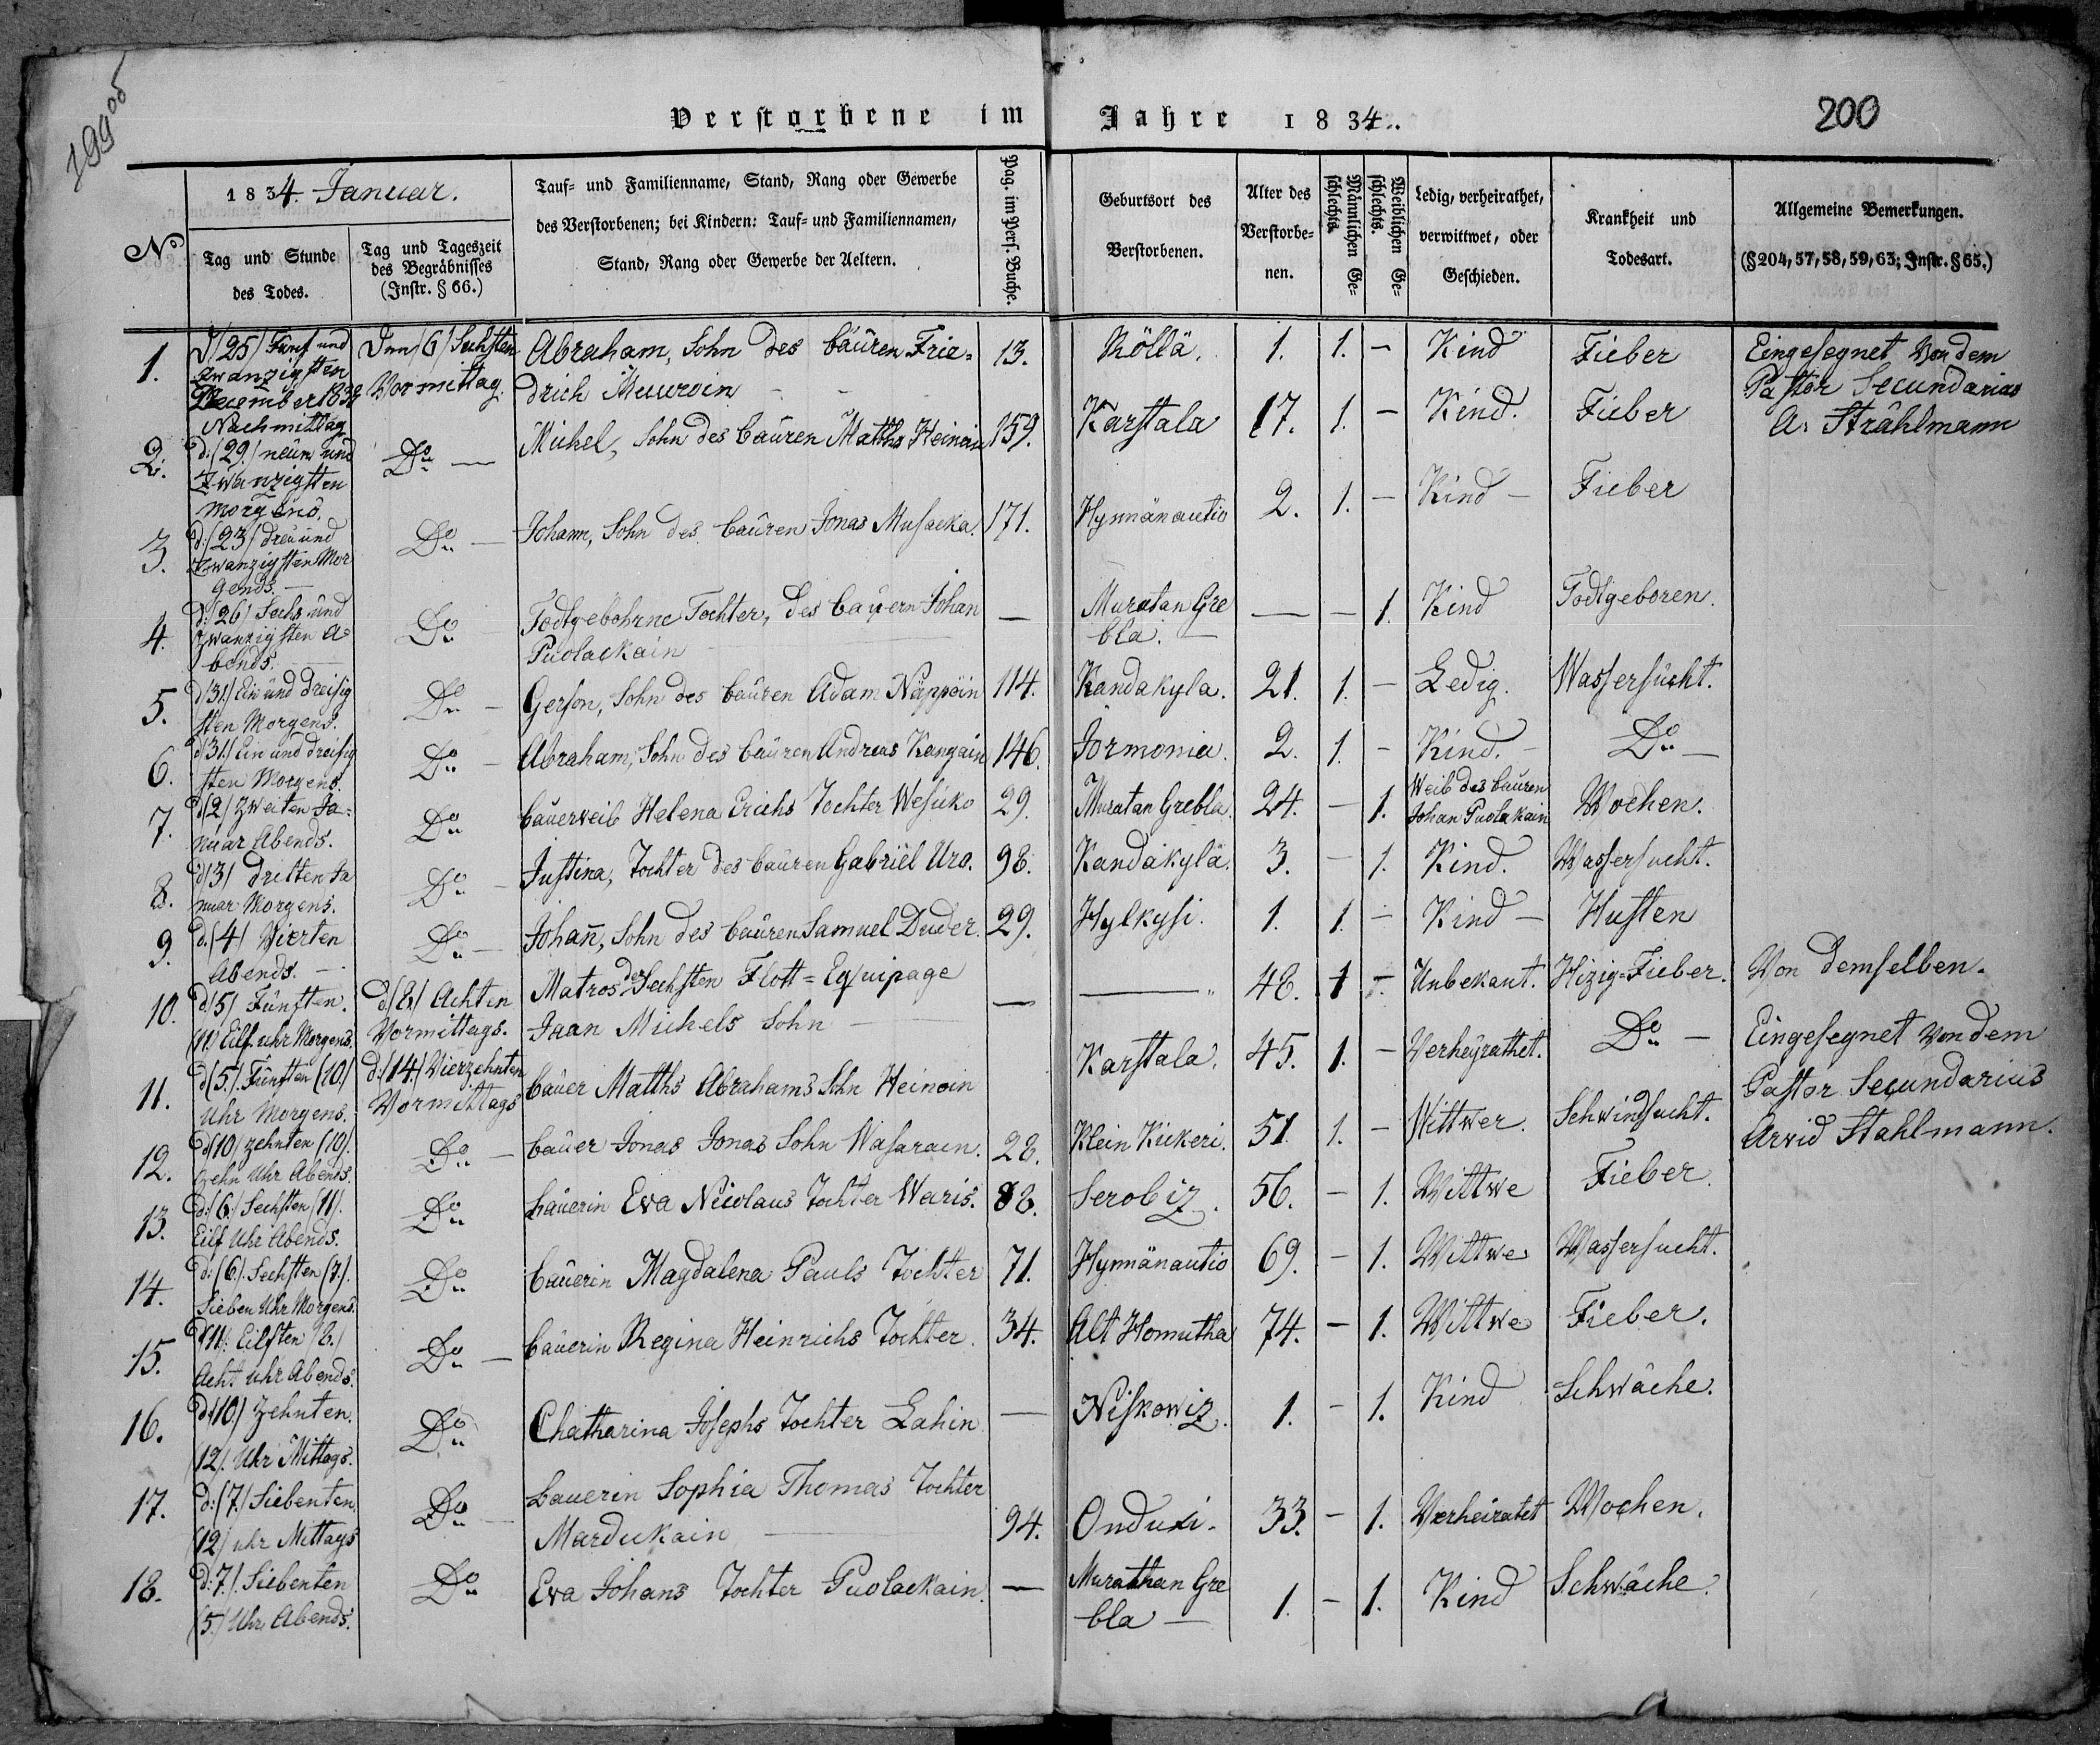 199 об
200
Verstorbene im Jahre 1834.
No
1834. Januar.
Tag und Stunde
des Todes.
Tag und Tageszeit
des Begräbnisses
(Instr. § 66.)
Tauf- und Familienname, Stand, Rang oder Gewerbe
des Verstorbenen; bei Kindern: Tauf- und Familiennamen,
Stand, Rang oder Gewerbe der Aeltern.
Pag. im Pers. Buche.
Geburtsort des
Verstorbenen.
Alter des
Verstorbe-
nen.
Männlichen Ge-
schlechts.
Weiblichen Ge-
schlechts.
Ledig, verheirathet,
verwittwet, oder
Geschieden.
Krankheit und
Todesart.
Allgemeine Bemerkungen.
(§ 204, 57, 58, 59, 63; Instr. § 65.)
1.
d/25/ Fünf und
zwanzigsten
December
Nachmittag
Den /6/ Sechsten
Vormittag.
Abraham, Sohn des bauren Frie=
drich Muuroin
13. Köllä. 1. 1. – Kind Fieber
Eingesegnet Von dem
Pastor Secundarius
A. Strählmann
2.
d: (29.) neun und
Zwanzigsten
morgens.
Do —
Michel, Sohn des bauren Matths Heinoin 159. Karstala 17. 1. – Kind. Fieber
3.
d: (23) drei und
zwanzigsten Mor
gends. —
Do —
Johann, Sohn des bauren Jonas Musacka. 171. Hynnänautio 2. 1. – Kind – Fieber
4.
d: 26/ Sechs und
zwanzigsten A=
bends.
Do
Todtgebohrne Tochter, des bauern Johan
Puolackain
— Muratan Gre
bla. — — – 1. Kind Todtgeboren.
5.
d/31/ Ein und dreisig
sten Morgens.
Do –
Gerson, Sohn des bauren Adam Näppöin 114. Kandakyla. 21. 1. – Ledig. Wassersucht.
6.
d/31/ Ein und dreisig
sten Morgens.
Do –
Abraham, Sohn des bauren Andreas Kangain 146. Jormonia. 2. 1. – Kind. – Do —
7.
d/2/ Zweiten Ja=
nuar Abends.
Do
bauerweib Helena Erichs Tochter Wesüko 29. Muratan Grebla. 24. – 1.
Weib des bauren
Johan Puolakain
Wochen.
8.
d/3/ dritten Ja
nuar Morgens.
Do –
Justina, Tochter des bauren Gabriel Uro. 98. Kandakylä. 3. – 1. Kind. Wassersucht.
9.
d. (4) Vierten
Abends. —
Do –
Johan̄, Sohn des bauren Samuel Duder. 29. Hylkysi. 1. 1. – Kind – Husten
10.
d/5/ Fünften.
(11) Eilf uhr Morgens.
d/8/ Achten
Vormittags.
Matros der Sechsten Flott=Equipage
Jaan Michels Sohn —
— — 48. 1 –. Unbekant. Hizig=Fieber. Von demselben.
11.
d/5/. Fünften (10)
Uhr Morgens.
d:/14/ Vierzehnten
Vormittags
bauer Matths Abrahams Sohn Heinoin
Karstala. 45. 1. – Verheyrathet. Do –
Eingesegnet Von dem
Pastor Secundarius
Arvid Stahlmann.
12.
d/10/ zehnten (10).
zehn Uhr Abends.
Do –
bauer Jonas Jonas Sohn Wasarain. 28. Klein Kickeri. 51. 1. – Wittwer. Schwindsucht.
13.
d:/6/ Sechsten (11).
Eilf Uhr Abends.
Do
bauerin Eva Nicolaus Tochter Waris. 88. Serobiz. 56. – 1. Wittwe Fieber.
14.
d:/6/. Sechsten (7.).
Sieben Uhr Morgens.
Do
bauerin Magdalena Pauls Tochter 71. Hynnänautio 69. – 1. Wittwe Wassersucht.
15.
d/11/. Eilften /8./
Acht uhr Abends.
Do —
bauerin Regina Heinrichs Tochter. 34. Alt Homutha 74. – 1. Wittwe Fieber.
16.
d/10/ Zehnten.
(12). Uhr Mittags.
Do
Chatharina Josephs Tochter Lahin — Niskowiz. 1. – 1. Kind Schwäche.
17.
d:/7/ Siebenten,
(12) uhr Mittags
Do –
bauerin Sophia Thomas Tochter
Mardukain —
94. Onduxi. 33. – 1. Verheiratet Wochen.
18.
d:7/. Siebenten
(5.) Uhr Abends.
Do
Eva Johans Tochter Puolackain. — Murathan Gre
bla — 1. – 1. Kind Schwäche.